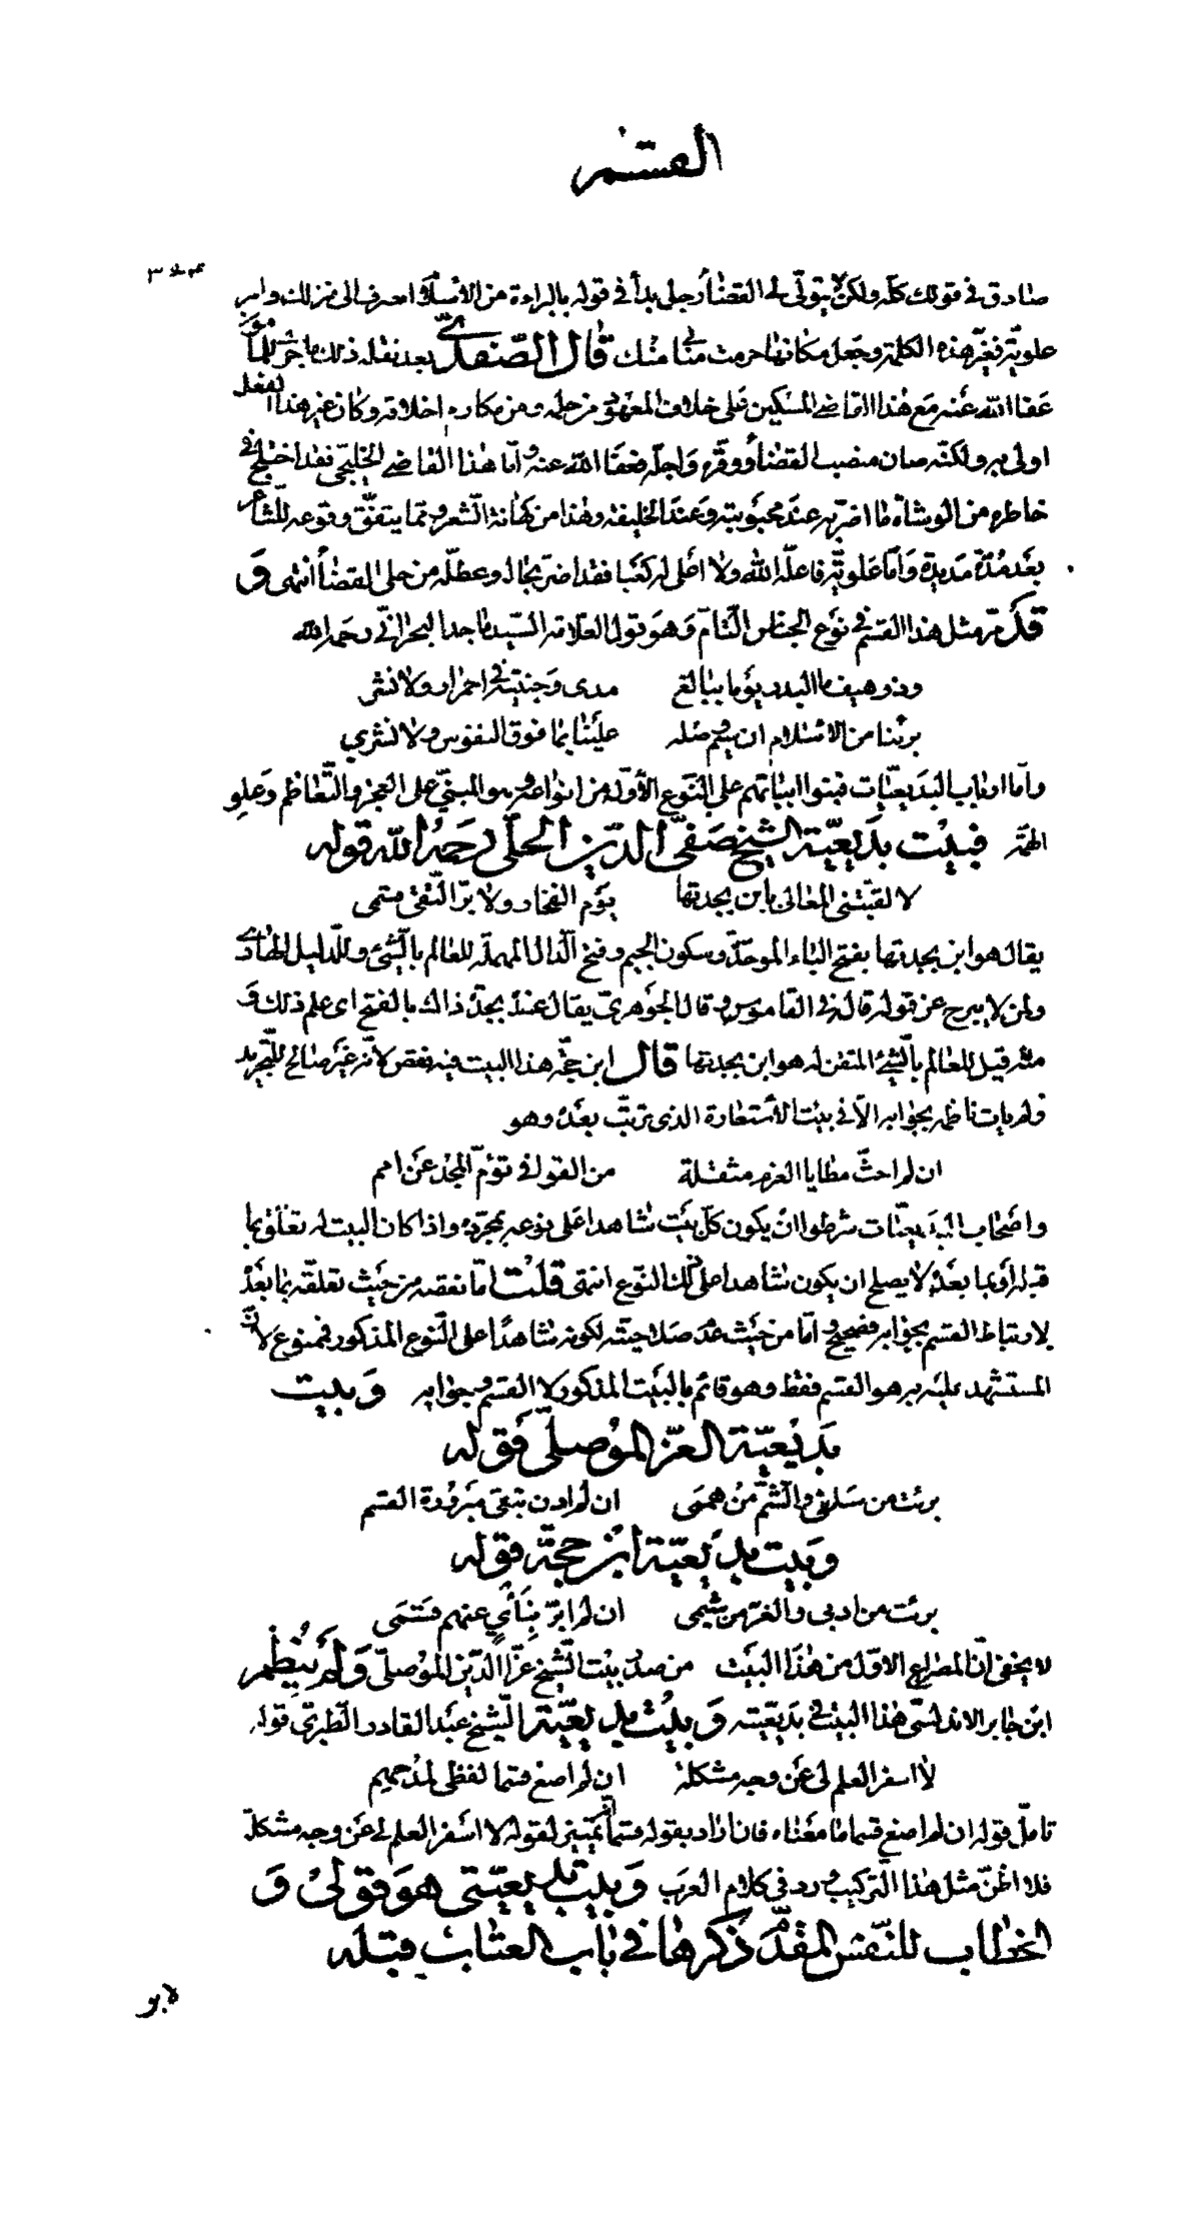 القسم
صادق في قولك كله ولكن لا يتولى لي القضاء رجل بدأ في قوله بالبراءة من الاسلام اصرف الى منزلك وامر
علوية فغير هذه الكلمة وجعل مكانها حرمت مناي منك قال الصفدي بعد نقله ذلك ما جرى للمأمون
عفا الله عنه مع هذا القاضي المسكين على خلاف المعهود من حلمه ومن مكارم اخلاقه وكان غير هذا الفعل
اولى به ولكنه صان منصب القضاء ووقره واجله فعفا الله عنه واما هذا القاضي الخليجي فقد اختلج في
خاطره من الوشاة ما اضر به عند محبوبته وعند الخليفة وهذا من كهانة الشعر ومما يتفق وقوعه للشاعر
بعد مدة مديدة واما علوية فاعله الله ولا اعلى له كعبا فقد اضر بحاله وعطله من حلى القضاء انتهى و
قد مر مثل هذا القسم في نوع الجناس التام وهو قول العلامة السيد ماجد البحراني رحمه الله
وذو هيف ما البدر يوما ببالغ مدى وجنتيه في احمرار ولا نشر
برئنا من الاسلام ان سيم وصله علينا بما فوق النفوس ولا نشري
واما ارباب البديعيات فبنوا ابياتهم على النوع الأول من انواعه وهو المبني على الفخر والتعاظم وعلو
الهمة فبيت بديعية الشيخ صفي الدين الحلي رحمه الله قوله
لا لقبتني المعالي بابن بجدتها يوم الفخار ولا بر التقى قسمي
يقال هو ابن بجدتها بفتح الباء الموحدة وسكون الجيم وفتح الدال المهملة للعالم بالشيء وللدليل الهادي
ولمن لا يبرح عن قوله قاله في القاموس وقال الجوهري يقال عنده بجدة ذاك بالفتح اي علم ذلك و
منه قيل للعالم بالشيء المتقن له هو ابن بجدتها قال ابن حجة هذا البيت فيه نقص لانه غير صالح للتجريد
ولم يات ناظمه بجوابه الا في بيت الاستعارة الذي ترتب بعده وهو
ان لم احث مطايا العزم مثقلة من القوافي تؤم المجد عن امم
واصحاب البديعيات شرطوا ان يكون كل بيت شاهدا على نوعه بمجرده واذا كان البيت له تعلق بما
قبله او بما بعده لا يصلح ان يكون شاهدا على ذلك النوع انتهى قلت اما نقصه من حيث تعلقه بما بعده
لارتباط القسم بجوابه فصحيح واما من حيث عدم صلاحيته لكونه شاهدا على النوع المذكور فممنوع لان
المستشهد عليه به هو القسم فقط وهو قائم بالبيت المذكور لا القسم وجوابه وبيت
بديعية العز الموصلي قوله
برئت من سلفي والشم من هممي ان لم ادن بتقى مبرورة القسم
وبيت بديعية ابن حجة قوله
برئت من ادبي والغر من شيمي ان لم ابر بنأي عنهم قسمي
لا يخفى ان المصراع الاول من هذا البيت من صدر بيت الشيخ عز الدين الموصلي ولم ينظم
ابن جابر الاندلسي هذا البيت في بديعيته وبيت بديعية الشيخ عبد القادر الطبري قوله
لا اسفر العلم لي عن وجه مشكلة ان لم اصغ قسما لفظي لمدحهم
تامل قوله ان لم اصغ قسما ما معناه فان اراد بقوله قسما انه تمييز لقوله لا اسفر العلم لي عن وجه مشكلة
فلا اظن مثل هذا التركيب ورد في كلام العرب وبيت بديعيتي هو قولي و
الخطاب للنفس المقدم ذكرها في باب العتاب قبله
لا بر